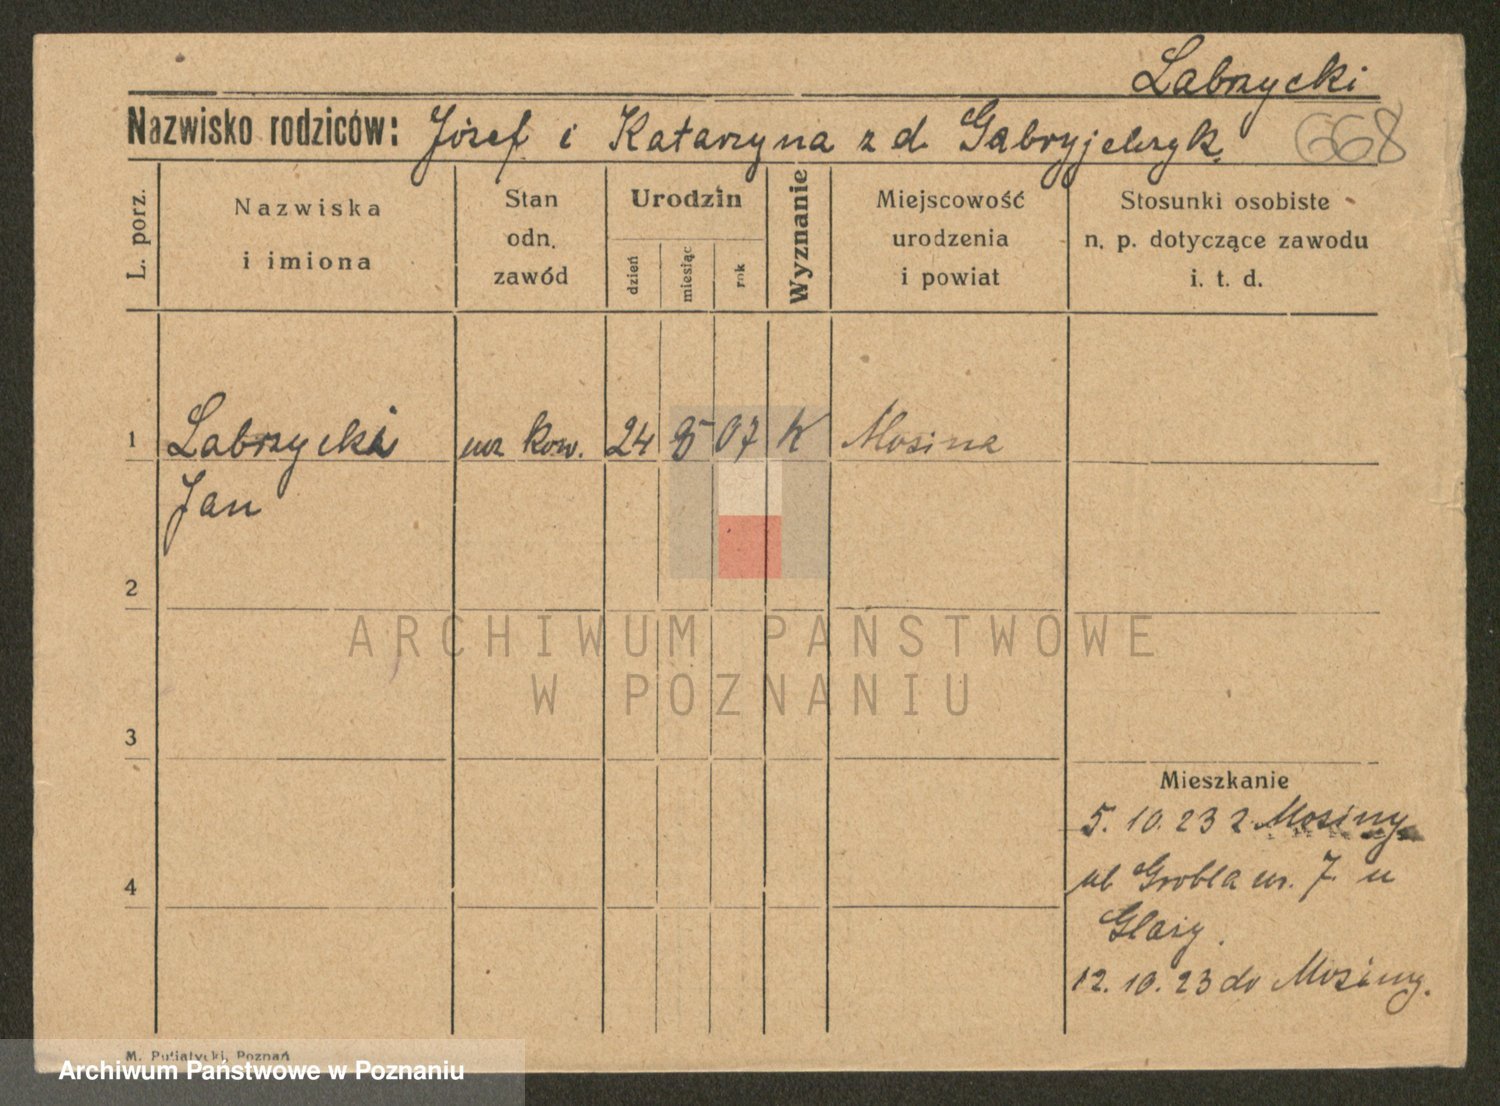 Labrzycki
Nazwisko rodziców: Józef i Katarzyna z d. Gabryjelczyk.
668
L. porz.
Nazwiska
i imiona
Stan
odn.
zawód
Urodzin
dzień
miesiąc
rok
Wyznanie
Miejscowość
urodzenia
i powiat
Stosunki osobiste
n. p. dotyczące zawodu
i. t. d.
1 Labrzycki ucz kow. 24 5 07 K Mosina
Jan
2
ARCHIWUM PAŃSTWOWE
W POZNANIU
3
Mieszkanie
5. 10. 23 z Mosiny
ul Grobla nr. 7 u
4
12. 10. 23 do Mosiny.
M. Putiatycki, Poznań
Archiwum Państwowe w Poznaniu